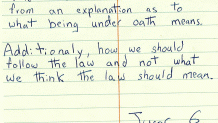 from an explanation as to
what being under oath means.
Additionaly, how we should
follow the law and not what
we think the law should mean.
Juror 6